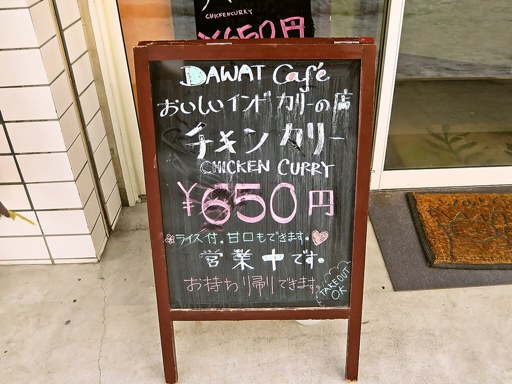 CHICKENCURRY
¥650円
DAWAT Café
おいしいインド カリーの店
チキン カリー
CHICKEN CURRY
¥650円
ライス付。甘口もできます。
営業中です。
お持ち帰りできます。
TAKEOUT OK